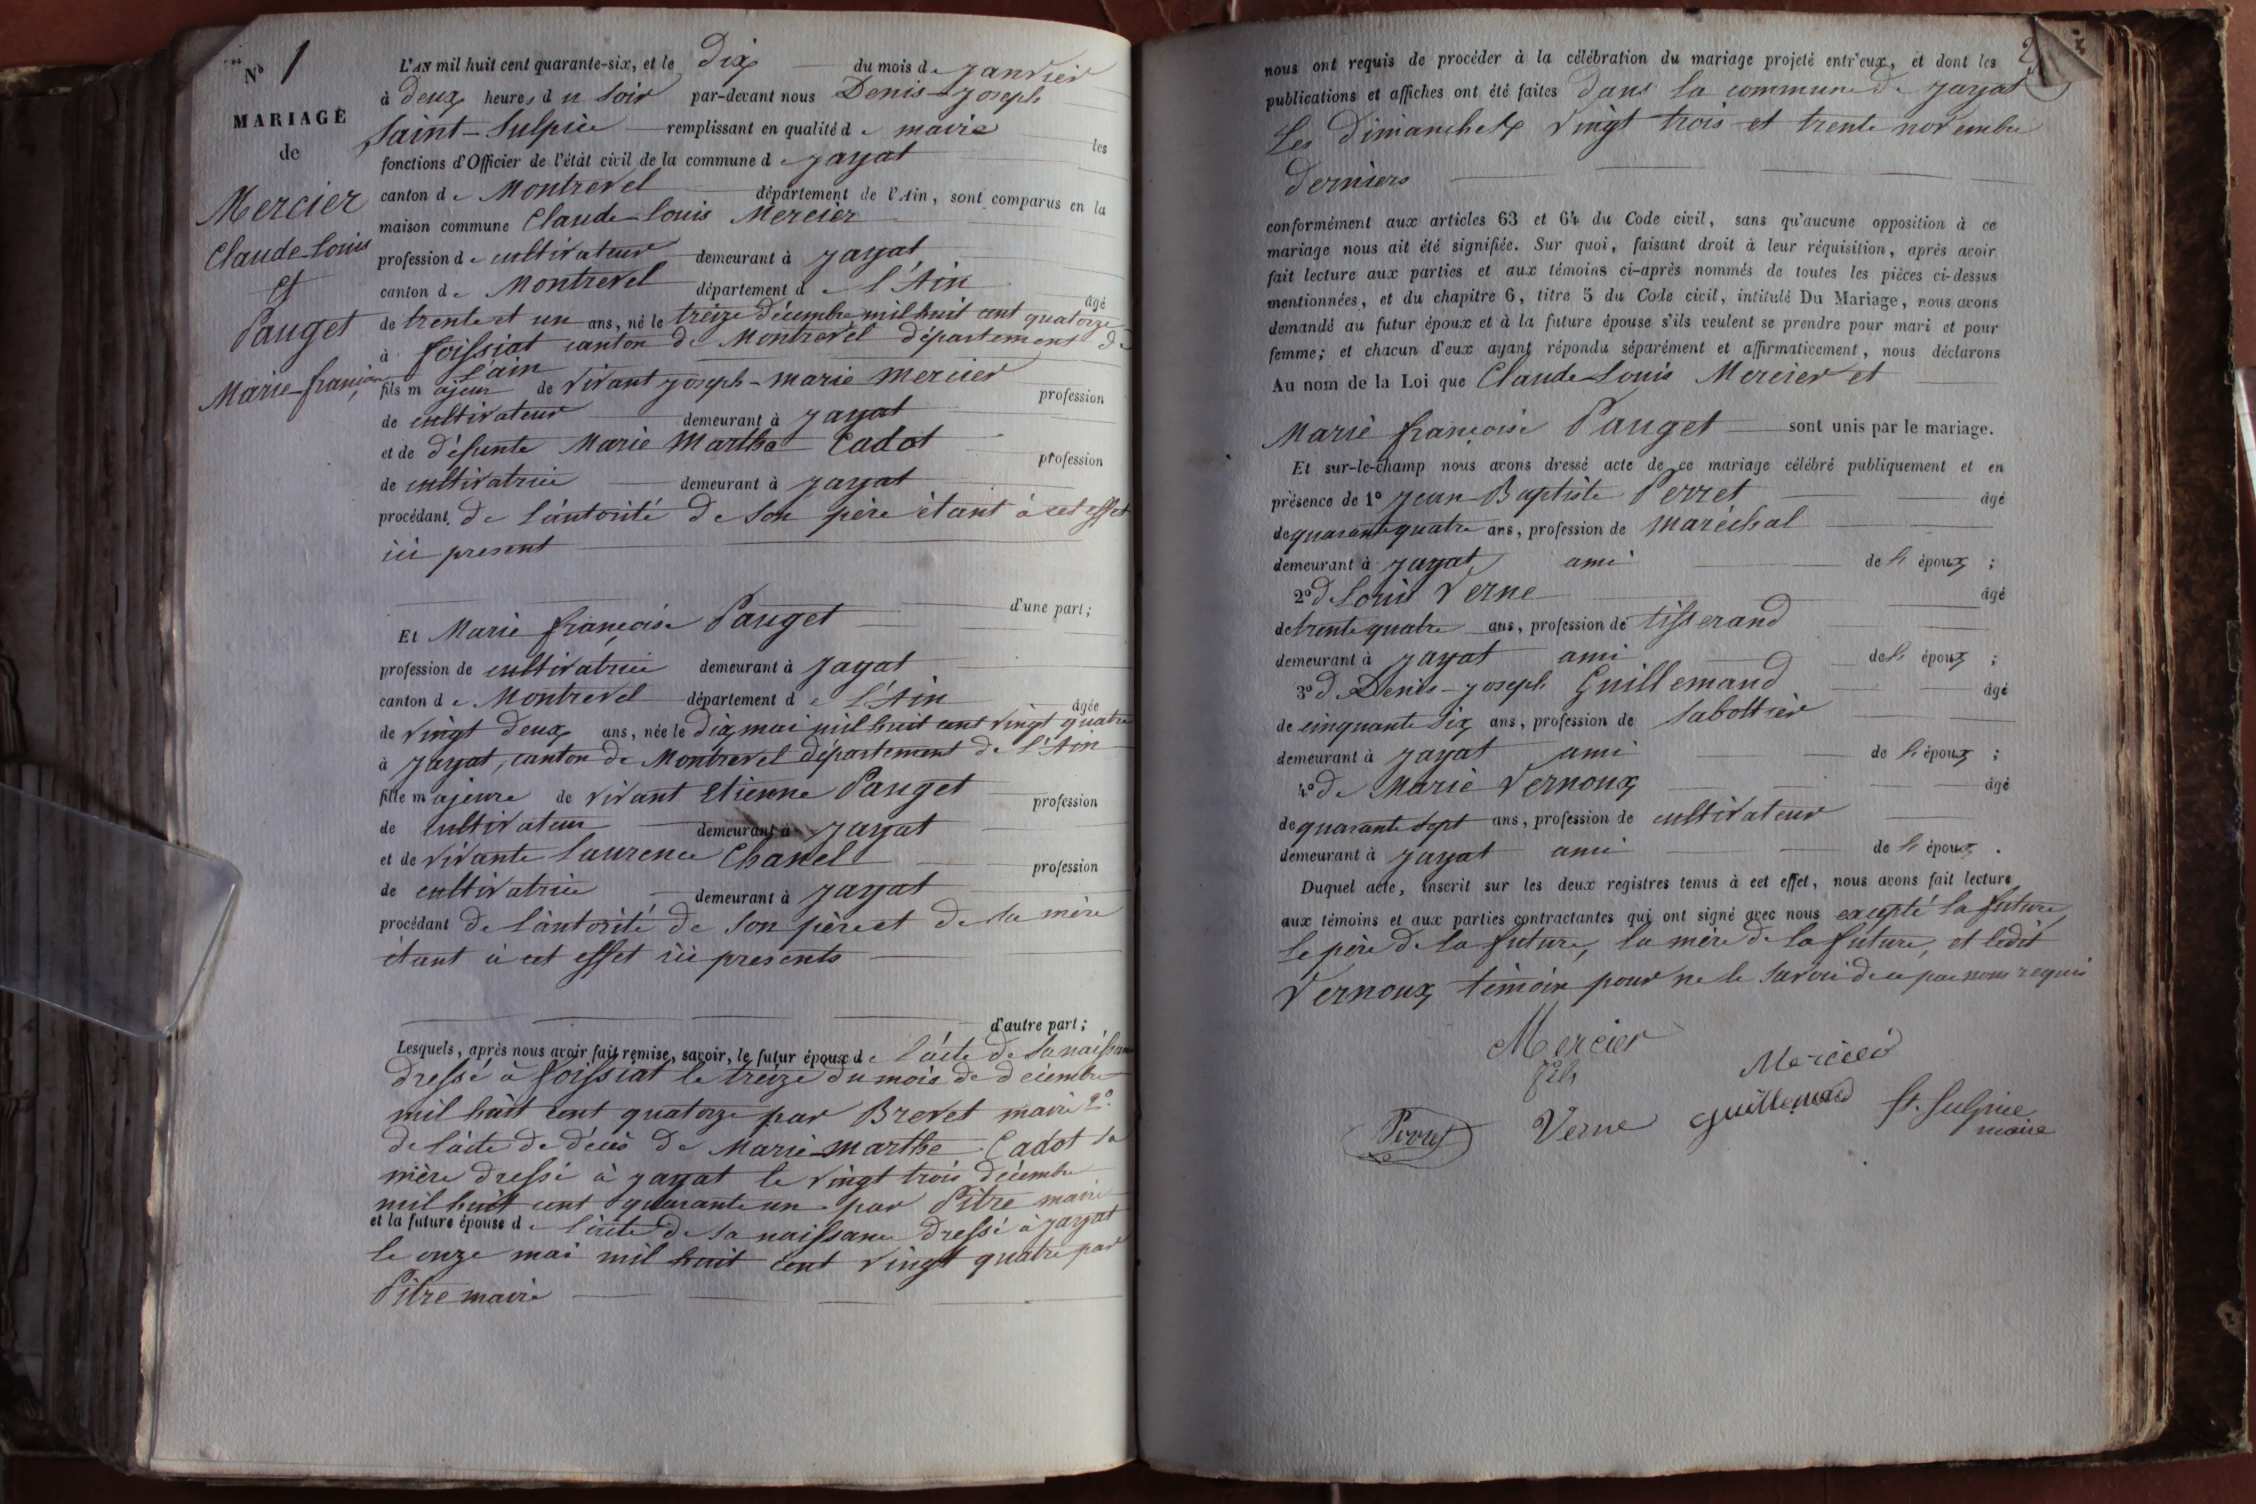 N° 1
MARIAGE
de
Mercier
Claude-Louis
et
Pauget
Marie-françoise
L'AN mil huit cent quarante-six, et le dix du mois de janvier
à deux heures du soir par-devant nous Denis-Joseph
Saint-Sulpice remplissant en qualité de maire les
fonctions d'Officier de l'état civil de la commune de jayat
canton de Montrevel département de l'Ain, sont comparus en la
maison commune Claude-Louis Mercier
profession de cultivateur demeurant à jayat
canton de Montrevel département de l'Ain âgé
de trente et un ans, né le treize décembre mil huit cent quatorze
à foissiat canton de Montrevel département de
l'ain
fils majeur de vivant joseph-marie mercier profession
de cultivateur demeurant à jayat
et de défunte Marie Marthe Cadot profession
de cultivatrice demeurant à jayat
procédant de l'autorité de son père étant à cet effet
ici present
d'une part;
Et Marie françoise Pauget
profession de cultivatrice demeurant à jayat
canton de Montrevel département de l'Ain âgée
de vingt deux ans, née le dix mai mil huit cent vingt quatre
à jayat, canton de Montrevel département de l'Ain
fille majeure de vivant Etienne Pauget profession
de cultivateur demeurant à jayat
et de vivante Laurence Chanel profession
de cultivatrice demeurant à jayat
procédant de l'autorité de son père et de sa mère
étant à cet effet ici presents
d'autre part;
Lesquels, après nous avoir fait remise, savoir, le futur époux de l'acte de sa naissance
dressé à foissiat le treize du mois de décembre
mil huit cent quatorze par Brevet maire 2°
de l'acte de décès de Marie-marthe Cadot sa
mère dressé à jayat le vingt trois décembre
mil huit cent quarante un par Pitre maire
et la future épouse de l'acte de sa naissance dressé à jayat
le onze mai mil huit cent vingt quatre par
Pitre maire
2
nous ont requis de procéder à la célébration du mariage projeté entr'eux, et dont les
publications et affiches ont été faites dans la commune de jayat
Les dimanches vingt trois et trente novembre
derniers
conformément aux articles 63 et 64 du Code civil, sans qu'aucune opposition à ce
mariage nous ait été signifiée. Sur quoi, faisant droit à leur réquisition, après avoir
fait lecture aux parties et aux témoins ci-après nommés de toutes les pièces ci-dessus
mentionnées, et du chapitre 6, titre 5 du Code civil, intitulé Du Mariage, nous avons
demandé au futur époux et à la future épouse s'ils veulent se prendre pour mari et pour
femme; et chacun d'eux ayant répondu séparément et affirmativement, nous déclarons
Au nom de la Loi que Claude-Louis Mercier et
Marie françoise Pauget sont unis par le mariage.
Et sur-le-champ nous avons dressé acte de ce mariage célébré publiquement et en
présence de 1° jean-Baptiste Perret âgé
de quarante quatre ans, profession de maréchal
demeurant à jayat, ami de l'époux;
2° de Louis Verne âgé
de trente quatre ans, profession de tisserand
demeurant à jayat ami de l'époux;
3° de Denis-joseph Guillemaud âgé
de cinquante six ans, profession de sabottier
demeurant à jayat ami de l'époux;
4° de Marie Vernoux âgé
de quarante sept ans, profession de cultivateur
demeurant à jayat ami de l'époux.
Duquel acte, inscrit sur les deux registres tenus à cet effet, nous avons fait lecture
aux témoins et aux parties contractantes qui ont signé avec nous excepté la future,
le père de la future, la mère de la future, et ledit
Vernoux témoin pour ne le savoir de ce par nous requis
Mercier
fils
Mercier
Perret
Verne
Guillemaud
St. Sulpice
maire